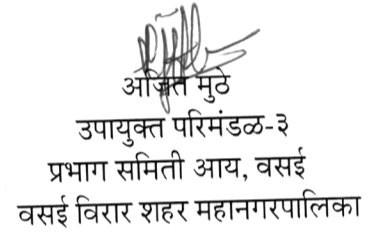 अजित मुठे
उपायुक्त परिमंडळ-३
प्रभाग समिती आय, वसई
वसई विरार शहर महानगरपालिका